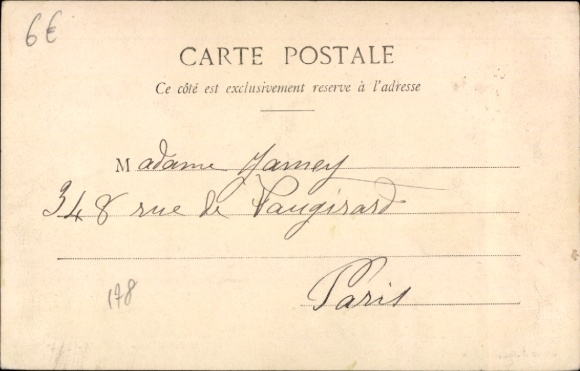 6€
CARTE POSTALE
Ce côté est exclusivement reserve à l'adresse
Madame Jamey
348 rue de Vaugirard
Paris
178